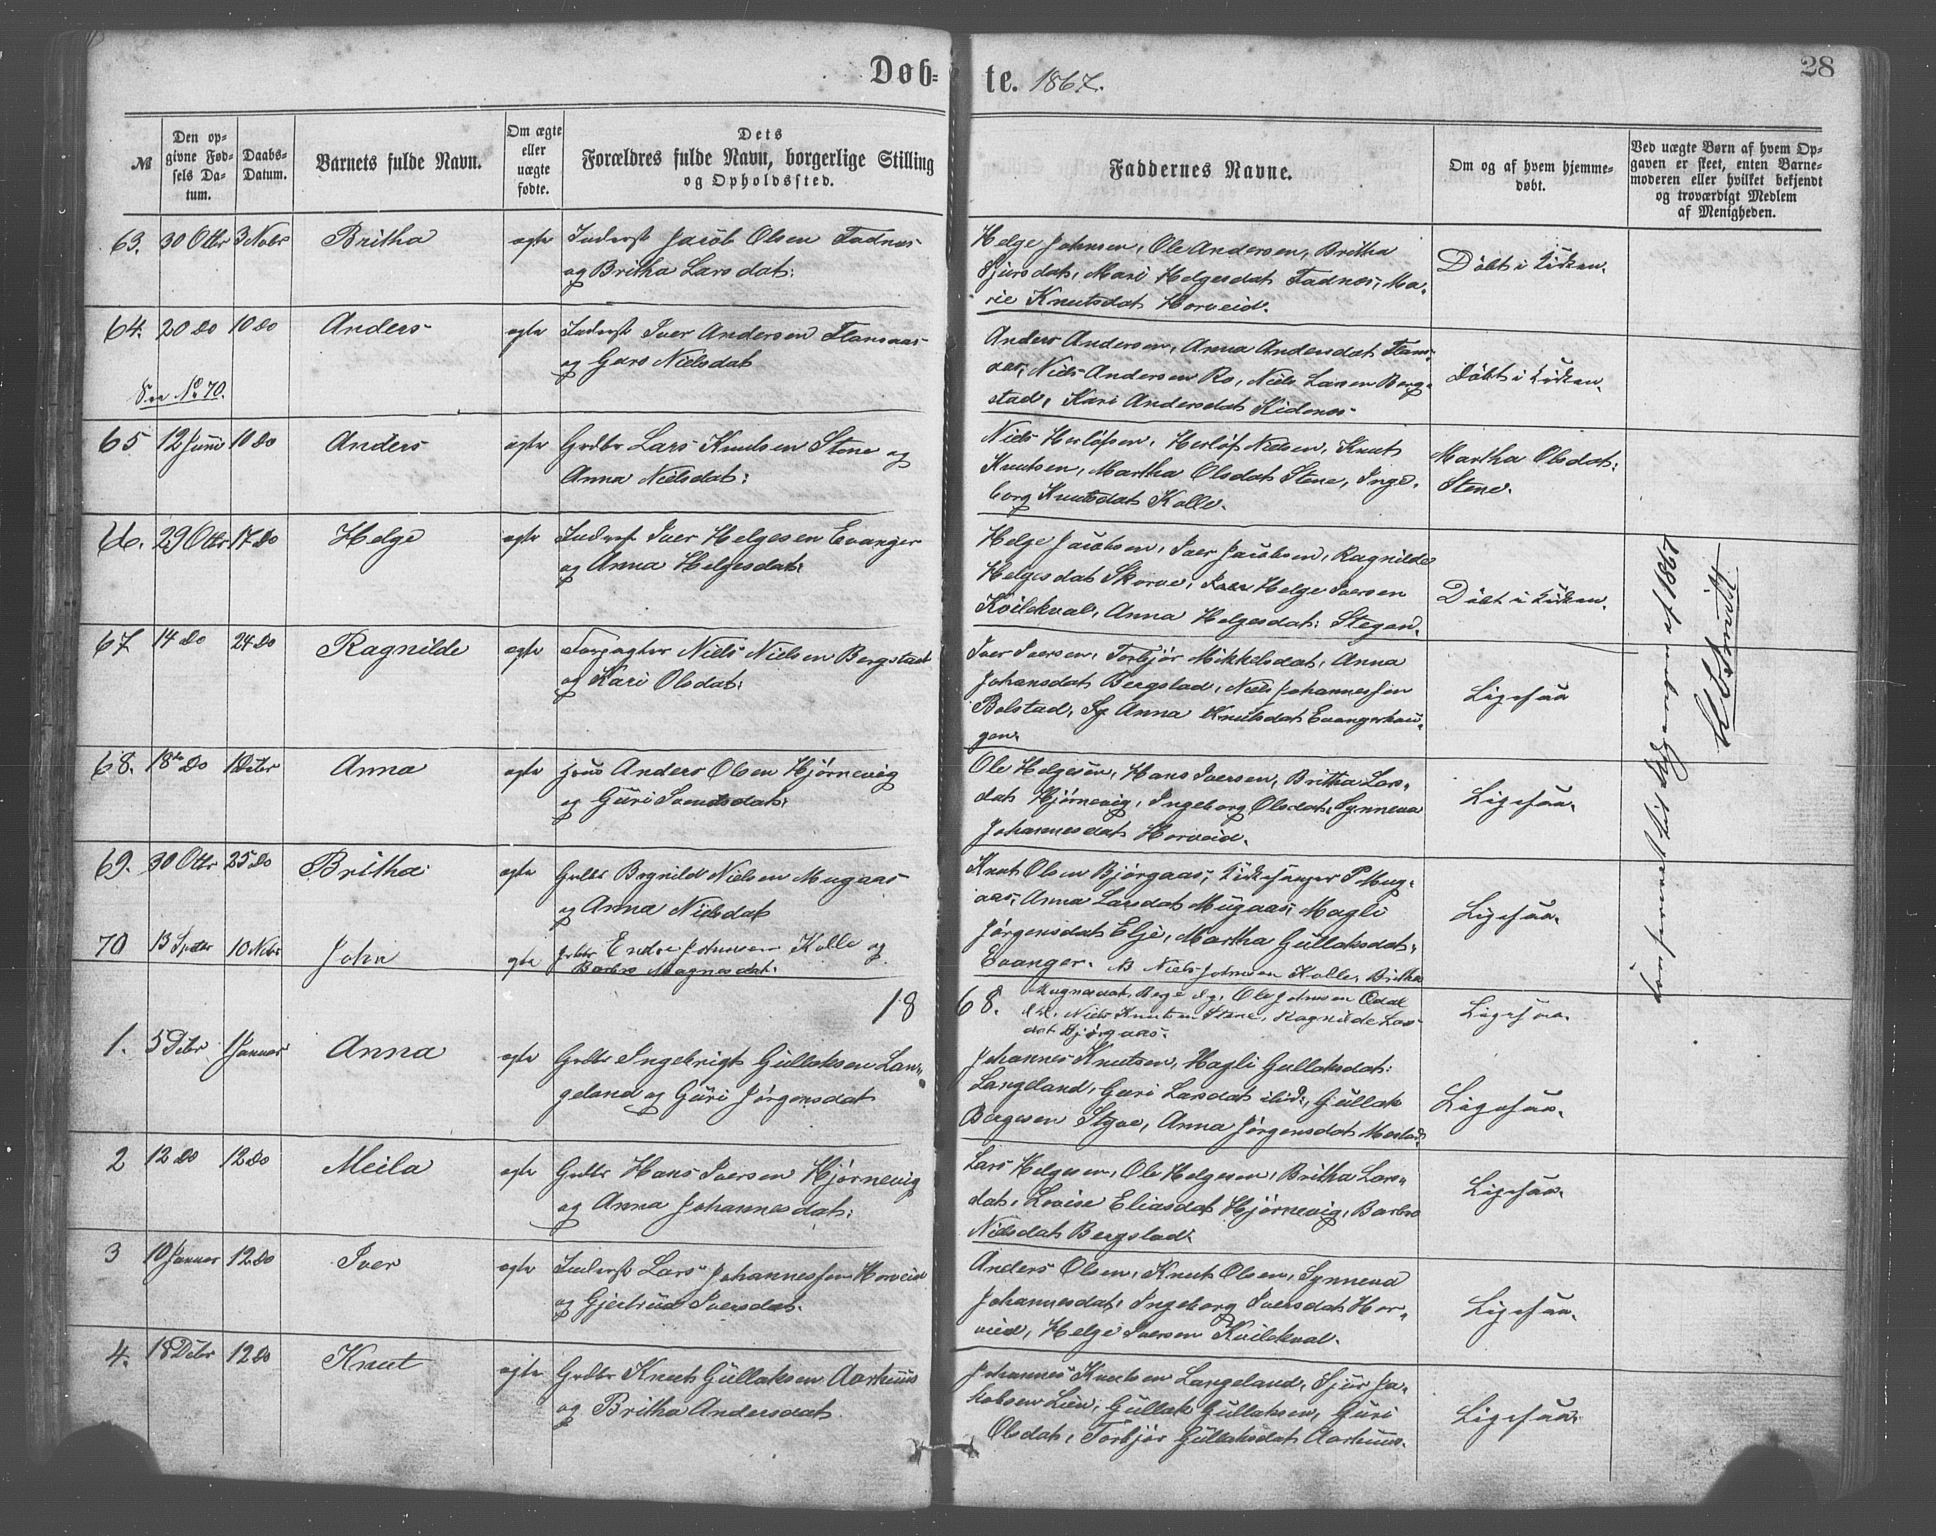 Døb= te. 1867. 28
№
Den op=
givne Fød=
sels Da=
tum.
Daabs=
Datum.
Barnets fulde Navn.
Om ægte
eller
uægte
fødte.
Dets
Forældres fulde Navn, borgerlige Stilling
og Opholdssted.
Faddernes Navne.
Om og af hvem hjemme=
døbt.
Ved uægte Børn af hvem Op=
gaven er skeet, enten Barne=
moderen eller hvilket bekjendt
og troværdigt Medlem
af Menigheden.
63. 30 Otbr 3 Nobr Britha ægte Inderst Jacob Olsen Fadnes
og Britha Larsdat:
Helge Johnsen, Ole Andersen, Britha
Sjursdat, Mari Helgesdat Fadnes, Ma=
rie Knutsdat Horveid.
Døbt i Kirken.
64. 20 Do 10 Do Anders ægte Inderst Iver Andersen
og Nielsdat
See No 70.
Anders Andersen, Anna Andersdat
Niels Andersen Ro, Niels Larsen Berg=
stad, Kari Andersdat
Døbt i Kirken.
65 12 Juni 10 Do Anders ægte Grdbr Lars Knutsen Stene og
Anna Nielsdat:
Niels Herlofsen, Herlof Nielsen, Knut
Knutsen, Martha Olsdat Stene, Inge=
borg Knutsdat Kolle.
Martha Olsdat:
Stene.
66. 29 Otbr 17 Do Helge ægte Inderst Iver Helgesen Evanger
og Anna Helgesdat:
Helge Jacobsen, Iver Jacobsen, Ragnilde
Helgesdat Skorve, Helge Iversen
Kvilekval, Anna Helgesdat:
Døbt i Kirken.
67 14 Do 24 Do Ragnilde ægte Forpagter Niels Nielsen Bergstad
og Kari Olsdat:
Iver Iversen, Torbjør Mikkelsdat, Anna
Johansdat Bergstad, Niels Johannessen
Bolstad, Anna Knutsdat Evangerhau=
gen.
Ligesaa
68. 18de Do 1 Debr Anna ægte Anders Olsen Hjørnevig
og Guri
Ole Helgesen, Hans Iversen, Britha Lars=
dat Hjørnevig, Ingeborg Olsdat, Synneva
Johannesdat Horveid.
Ligesaa.
69. 30 Otbr 25 Do Britha ægte Grdbr Nielsen Mugaas
og Anna Nielsdat
Knut Olsen Bjørgaas, Kirkesanger P Mug=
aas, Anna Larsdat Mugaas, Magli
Jørgensdat Elje, Martha Gullaksdat
Evanger.
Ligesaa.
70 13 Septbr 10 Nobr John ægte Grdbr Endre Johnsen Kolle og
Barbro Magnesdat.
Niels Johnsen Kolle, Britha
Magnesdat Berge Ole Johnsen
Niels Knutsen Stene, Ragnilde Lars=
dat Bjørgaas.
Ligesaa.
18 68.
1. 5 Debr 1 Januar Anna ægte Grdbr Ingebrigt Gullaksen Lan=
geland og Guri Jørgensdat
Johannes Knutsen, Hagli Gullaksdat:
Langeland, Guri Larsdat ibid, Gullak
Bergesen Styve, Anna Jørgensdat
Ligesaa.
2 12 Do 12 Do Meila ægte Grdbr Hans Iversen Hjørnevig
og Anna Johannesdat:
Lars Helgesen, Ole Helgesen, Britha Lars=
dat, Lovise Eliasdat Hjørnevig, Barbro
Nielsdat Bergstad.
Ligesaa.
3 10 Januar 12 Do Iver ægte Inderst Lars Johannessen Horveid
og Gjertrud Iversdat.
Anders Olsen, Knut Olsen, Synneva
Johannesdat, Ingeborg Iversdat Hor=
vied, Helge Iversen Kvilekval.
Ligesaa.
4. 18 Debr 12 Do Knut ægte Grdbr Knut Gullaksen Aarhuus
og Britha Andersdat
Johannes Knutsen Langeland, Sjur Ja=
kobsen Lien, Gullak Gullaksen, Guri
Olsdat, Torbjør Gullaksdat Aarhuus.
Ligesaa.
Konfereret til Udgangen af 1867